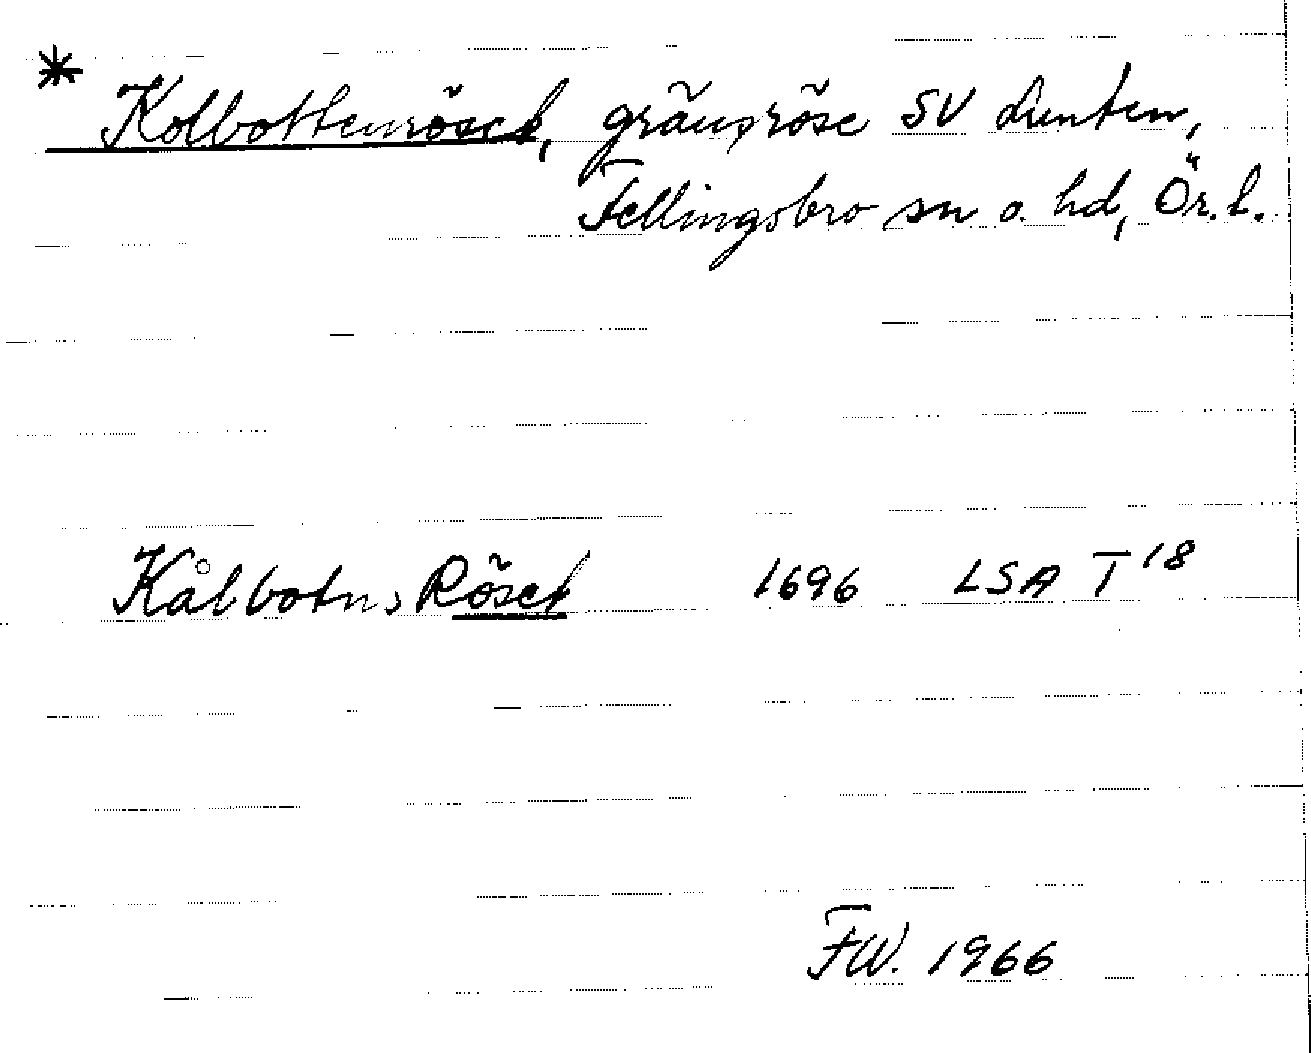 * Kolbottenröset, gränsröse SV Lunten,
Fellingsbro sn o. hd, Ör. l.
Kålbotns Röset 1696 LSA T 18
FW. 1966